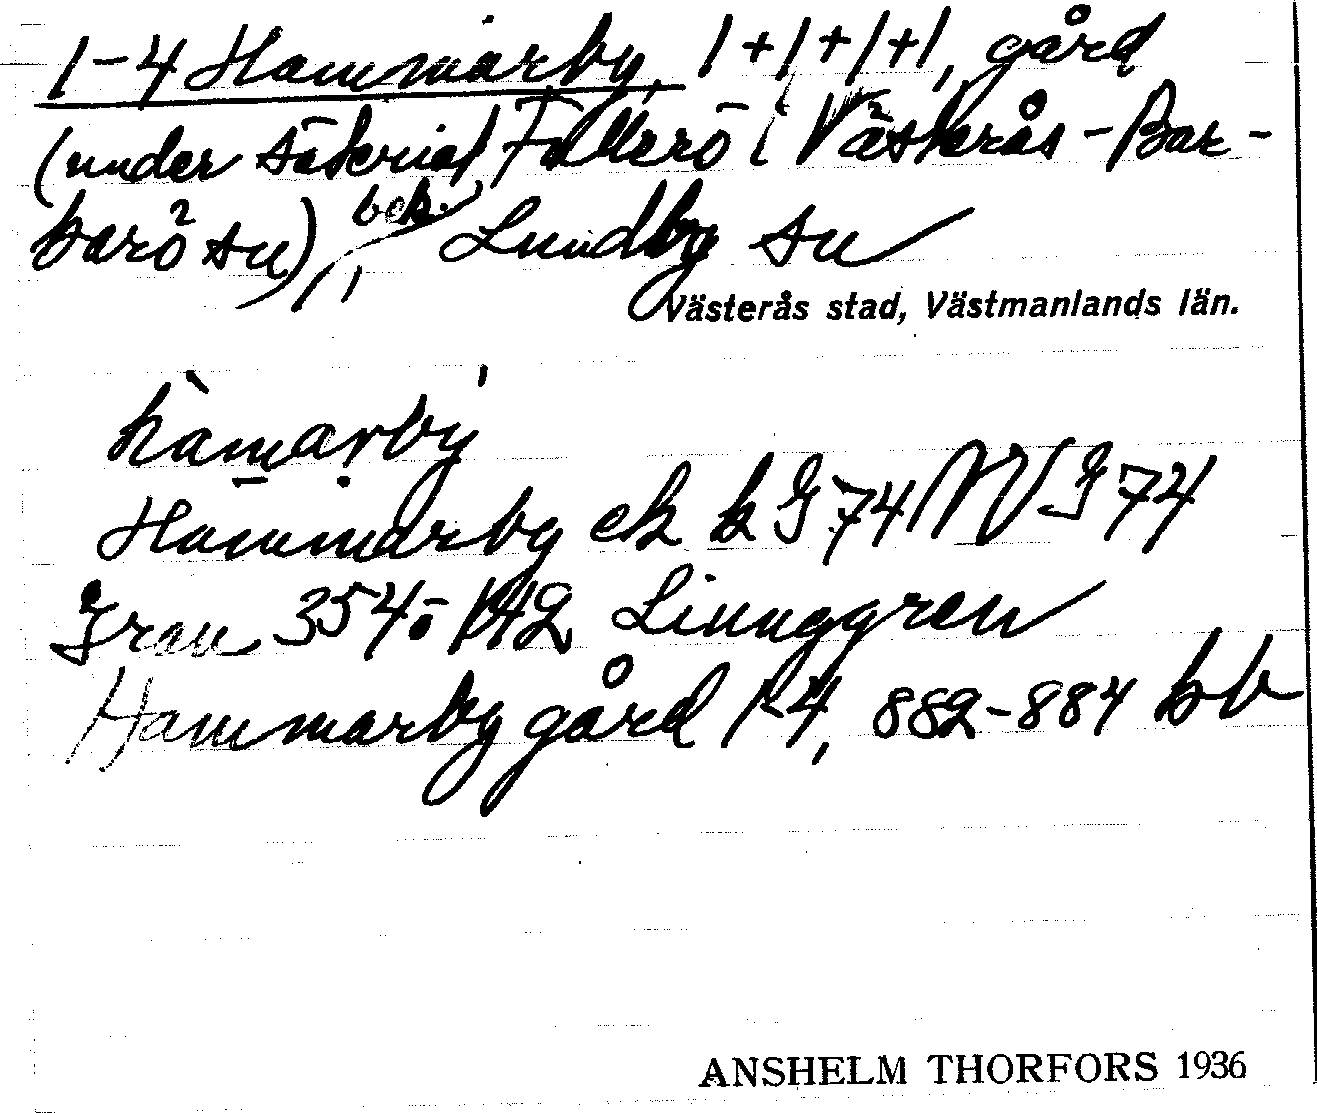 1-4 Hammarby, 1+1+1+1, gård
(under säteriet Fullerö i Västerås-Bar-
karö sn), bek. Lundby sn
Västerås stad, Västmanlands län.
hàmarby
Hammarby ek k G 74 W G 74
Gran 354 o 142 Linnggren
Hammarby gård 1-4, 882-884 kb
ANSHELM THORFORS 1936